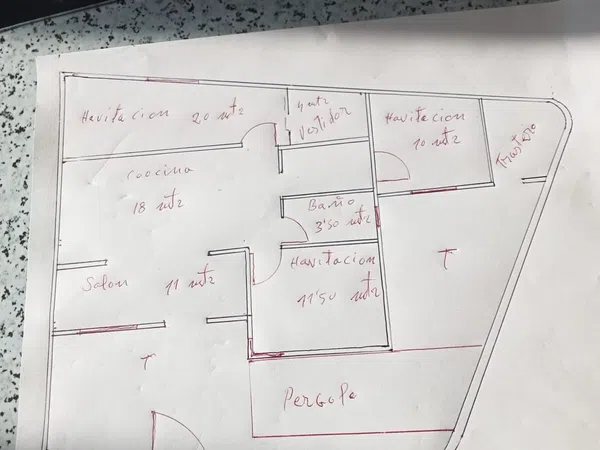 Havitacion 20 mt2
4 mt2
Vestidor
Havitacion
10 mt2
Trastero
Coocina
18 mt2
Baño
3'50 mt2
Havitacion
11'50 mt2
Salon 11 mt2
T
T
Pergola